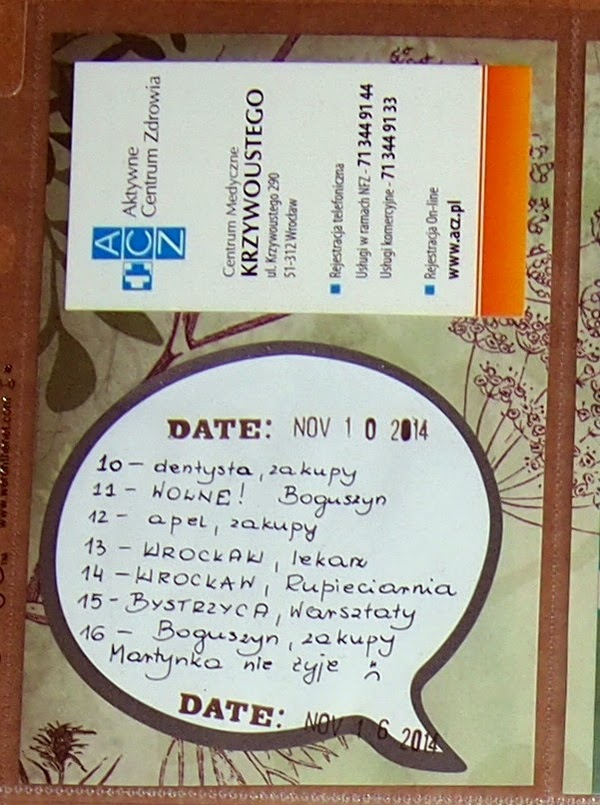 A
C
Z
Aktywne
Centrum Zdrowia
Centrum Medyczne
KRZYWOUSTEGO
ul. Krzywoustego 290
51-312 Wrocław
Rejestracja telefoniczna
Usługi w ramach NFZ - 71 344 91 44
Usługi komercyjne - 71 344 91 33
Rejestracja On-line
www.acz.pl
DATE: NOV 10 2014
10 - dentysta, zakupy
11 - WOLNE! Boguszyn
12 - apel, zakupy
13 - WROCŁAW, lekarz
14 - WROCŁAW, Rupieciarnia
15 - BYSTRZYCA, Warsztaty
16 - Boguszyn, zakupy
Martynka nie żyje :(
DATE: NOV 16 2014